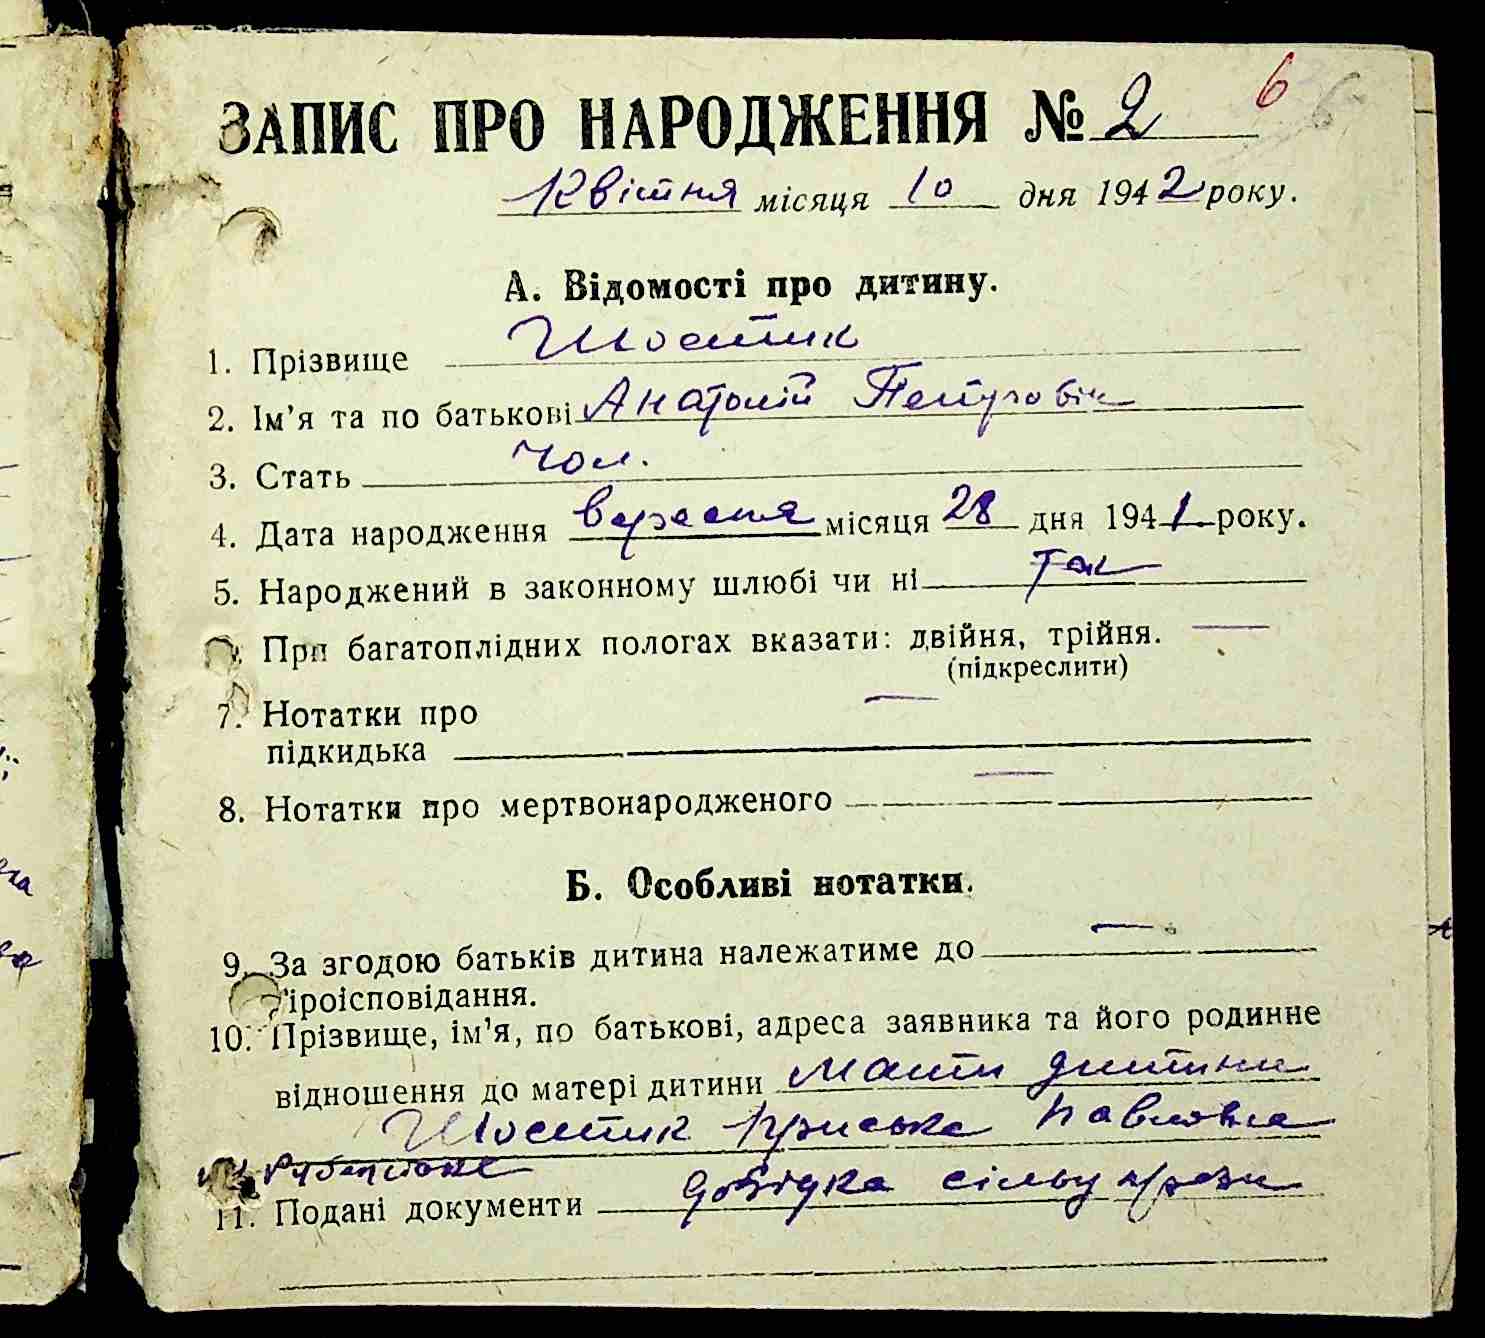 ЗАПИС ПРО НАРОДЖЕННЯ № 2
6 6
Квітня місяця 10 дня 1942 року.
А. Відомості про дитину.
1. Прізвище Шостик
2. Ім'я та по батькові Анатолій Петровін
3. Стать Чол.
4. Дата народження вересня місяця 28 дня 1941 року.
5. Народжений в законному шлюбі чи ні так
При багатоплідних пологах вказати: двійня, трійня. —
(підкреслити)
7. Нотатки про —
підкидька
8. Нотатки про мертвонародженого —
Б. Особливі нотатки.
9. За згодою батьків дитина належатиме до —
віроісповідання.
10. Прізвище, ім'я, по батькові, адреса заявника та його родинне
відношення до матері дитини Мати дитини
Шостик Приська Павловна
11. Подані документи довідка сільуправи